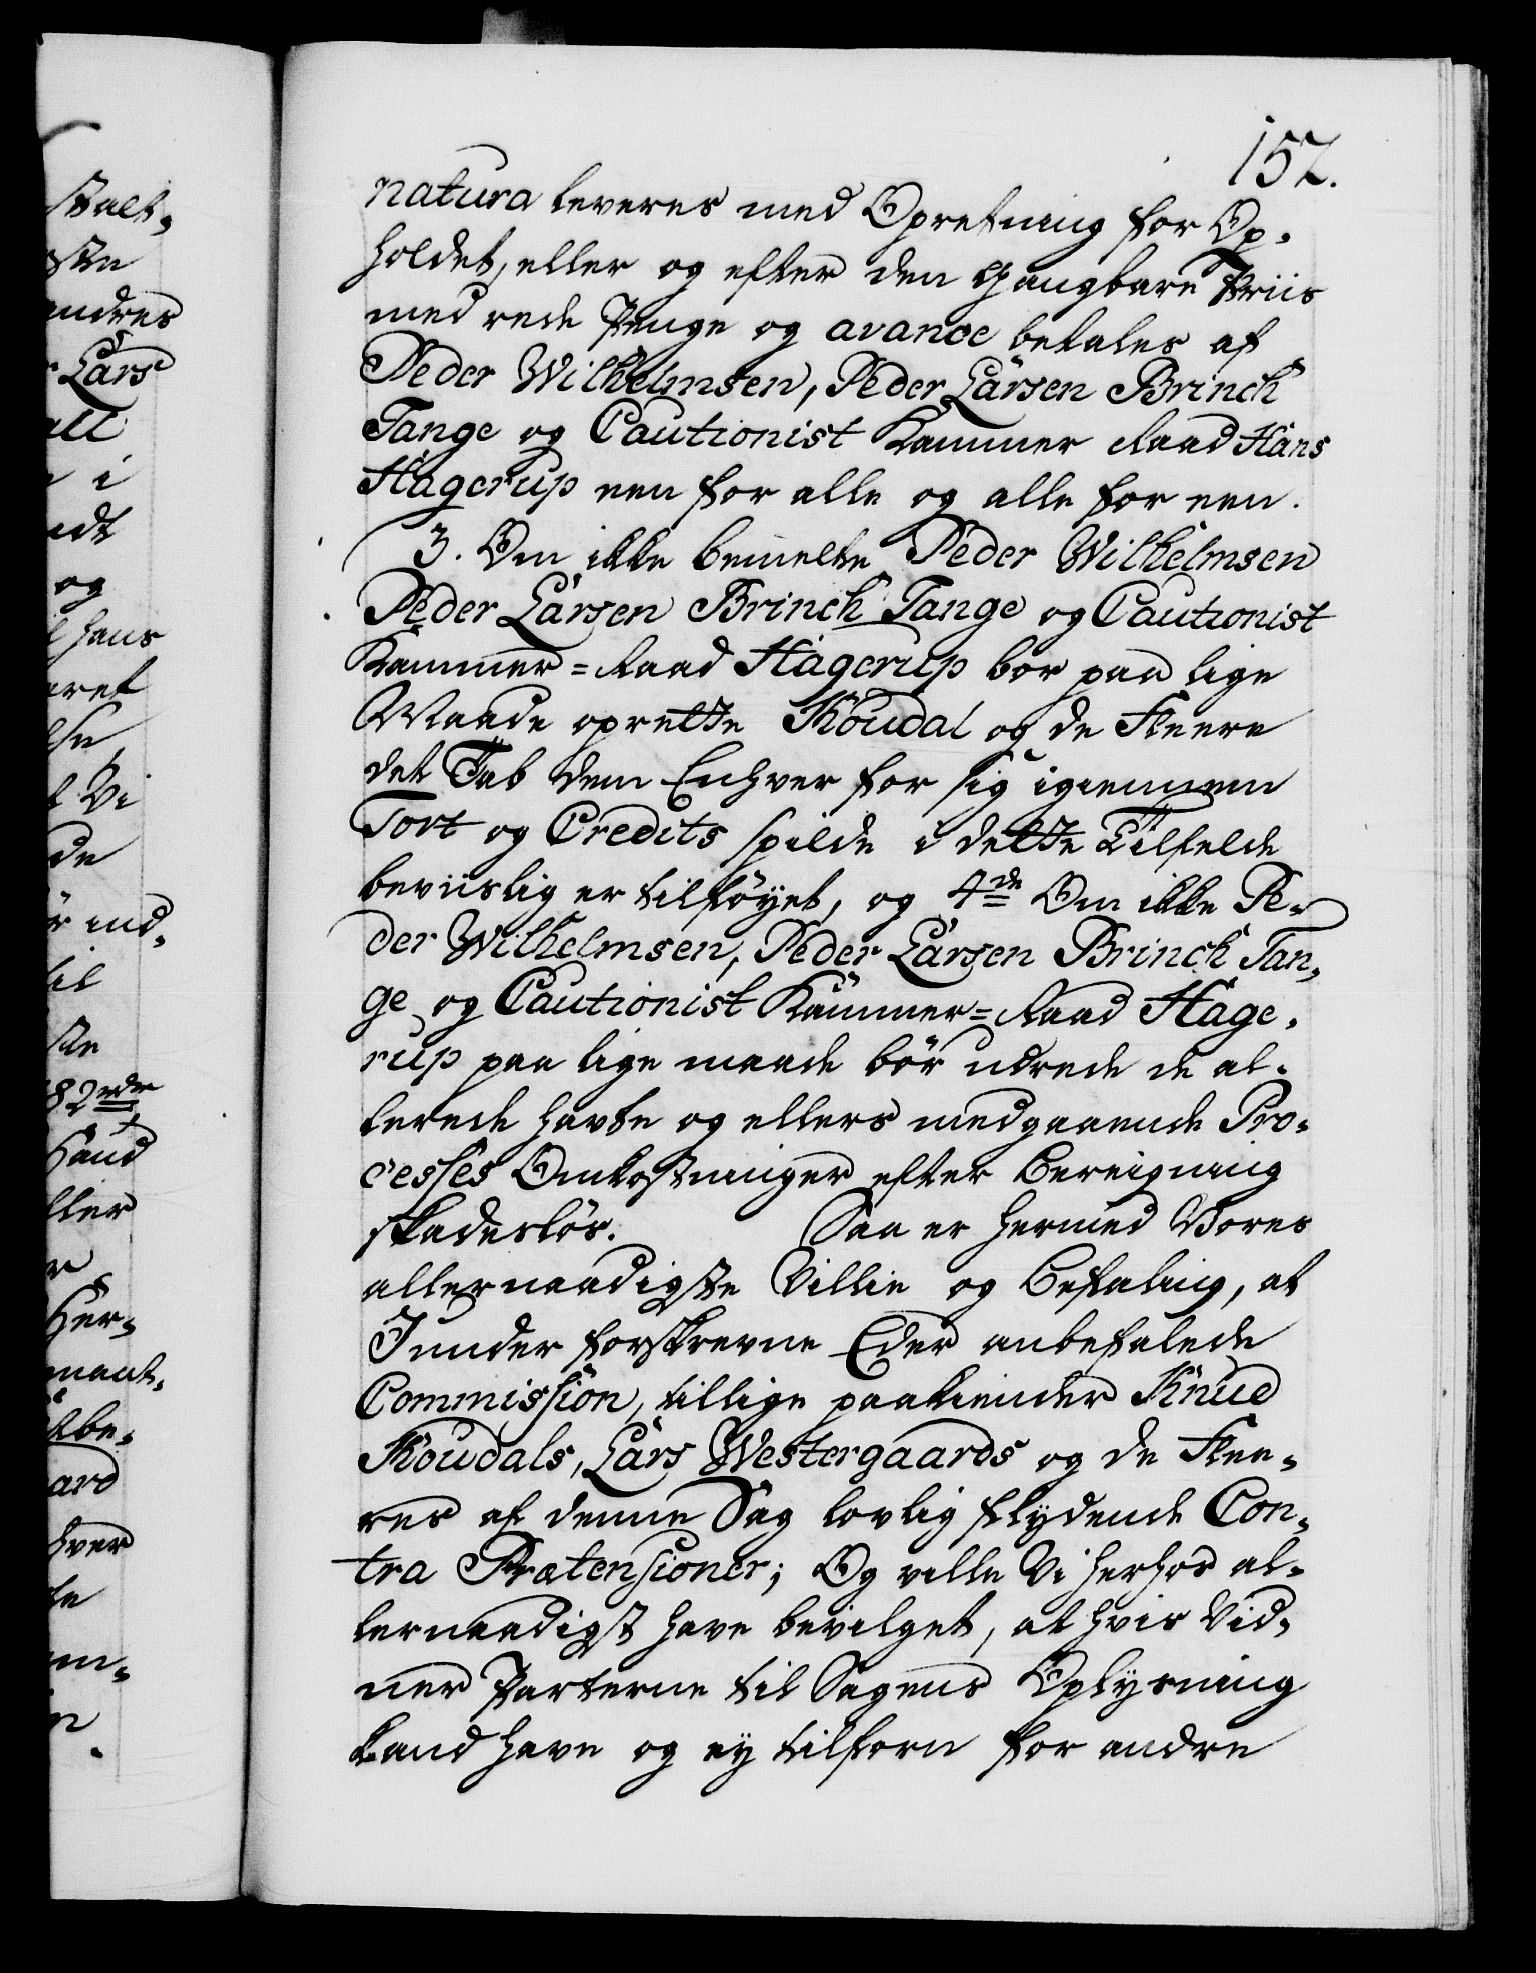 152.
natura leveres med Opretning for Op-
holdet, eller og efter den gangbare Priis
med rede Penge og avance betales af
Peder Wilhelmsen, Peder Larsen Brinch
Tange og Cautionist Kammer Raad Hans
Hagerup een for alle og alle for een.
3. Om ikke bemelte Peder Wilhelmsen
Peder Larsen Brinch Tange og Cautionist
Kammer=Raad Hagerup bor paa lige
Maade oprette Koudal og de Fleere
det Tab dem Enhver for sig igiennem
Tort og Credits spilde i dette Tilfelde
beviislig er tilføyet, og 4de Om ikke Pe-
der Wilhelmsen, Peder Larsen Brinch Tan-
ge og Cautionist Kammer=Raad Hage-
rup paa lige maade bør udrede de al-
lerede havte og ellers medgaaende Pro-
cesses Omkostninger efter Bereigning
skadesløs. Saa er hermed Vores
allernaadigste Villie og Befaling, at
I under forskrevne Eder anbefalede
Commission, tillige paakiender Knud
Koudals, Lars Westergaards og de Flee-
res af denne Sag lovlig flydende Con-
tra Prætensioner; Og ville Vi herhos al-
lernaadigst have bevilget, at hvis Vid-
ner Parterne til Sagens Oplysning
kand have og ey tilforn for andre